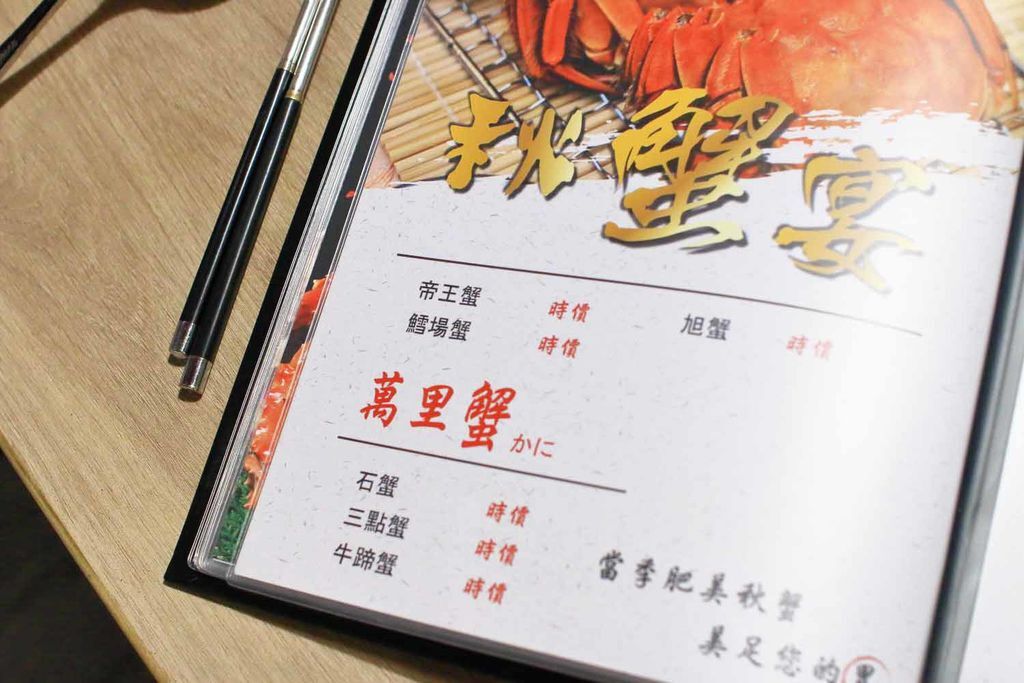 秋蟹宴
帝王蟹 時價 旭蟹 時價
鱈場蟹 時價
萬里蟹 かに
石蟹 時價
三點蟹 時價
牛蹄蟹 時價
當季肥美秋蟹
美足您的